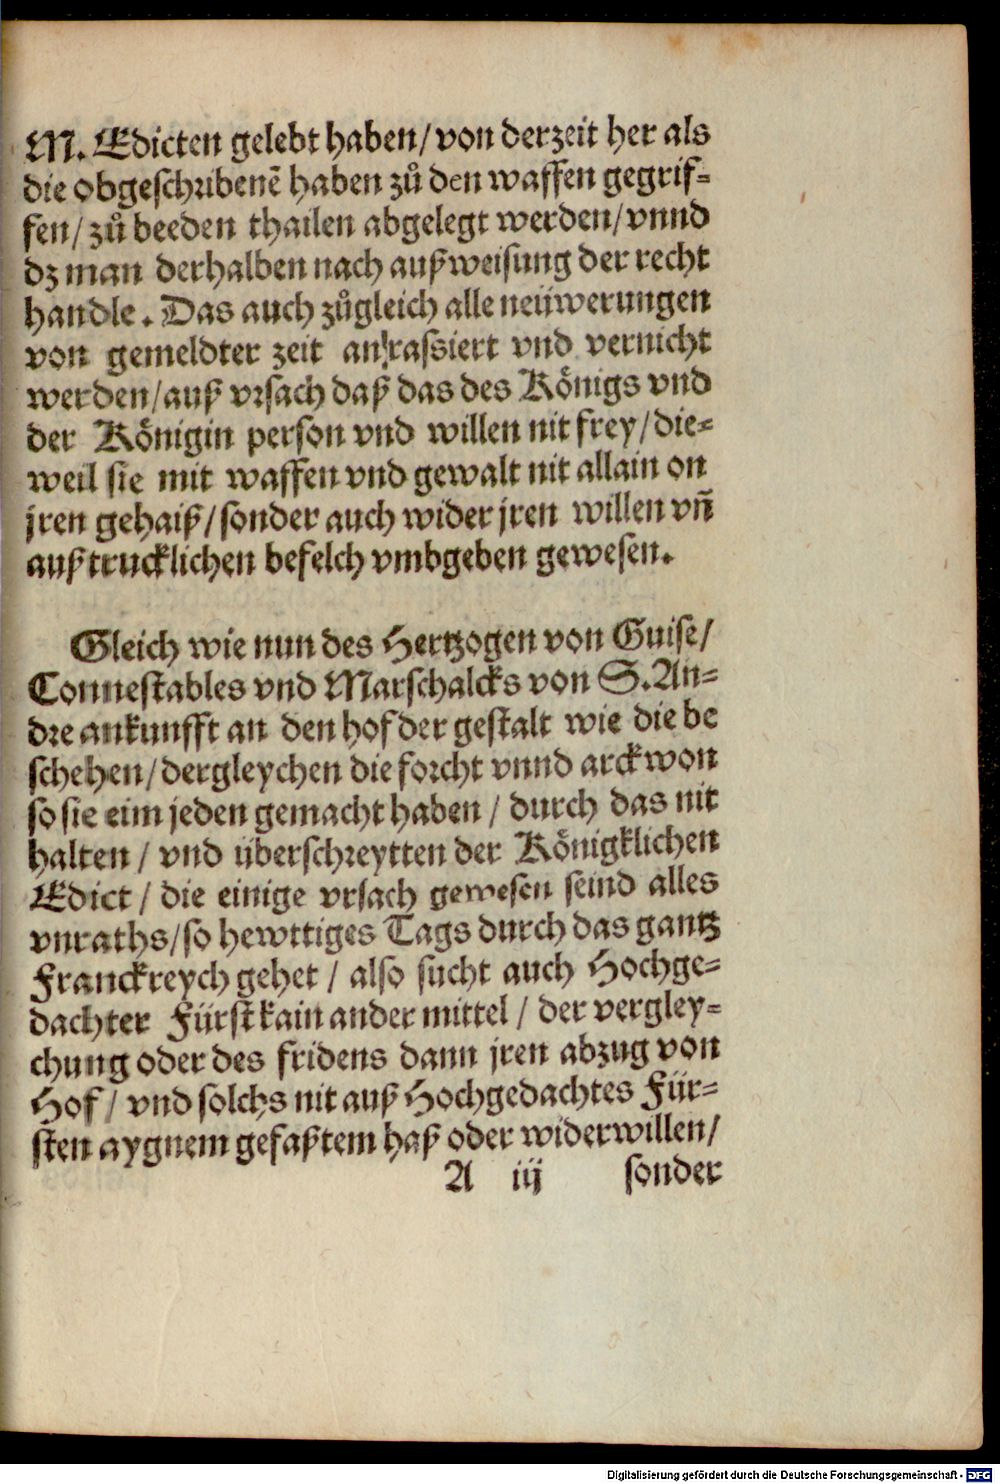 M. Edicten gelebt haben/ von der zeit her als
die obgeschribenẽ haben zů den waffen gegrif-
fen/ zů beeden thailen abgelegt werden/ vnnd
dz man derhalben nach außweisung der recht
handle. Das auch zůgleich alle neüwerungen
von gemeldter zeit an/rassiert vnd vernicht
werden/ auß vrsach daß das des Königs vnd
der Königin person vnd willen nit frey/ die-
weil sie mit waffen vnd gewalt nit allain on
jren gehaiß/ sonder auch wider jren willen vñ
außtrucklichen befelch vmbgeben gewesen.
Gleich wie nun des Hertzogen von Guise/
Connestables vnd Marschalcks von S. An-
dre ankunfft an den hof der gestalt wie die be
schehen/ dergleychen die forcht vnnd arckwon
so sie eim jeden gemacht haben / durch das nit
halten / vnd überschreytten der Königklichen
Edict / die einige vrsach gewesen seind alles
vnraths/ so hewttiges Tags durch das gantz
Franckreych gehet / also sucht auch Hochge-
dachter Fürst kain ander mittel / der vergley-
chung oder des fridens dann jren abzug von
Hof / vnd solchs nit auß Hochgedachtes Für-
sten aygnem gefaßtem haß oder widerwillen/
A iij sonder
Digitalisierung gefördert durch die Deutsche Forschungsgemeinschaft - DFG